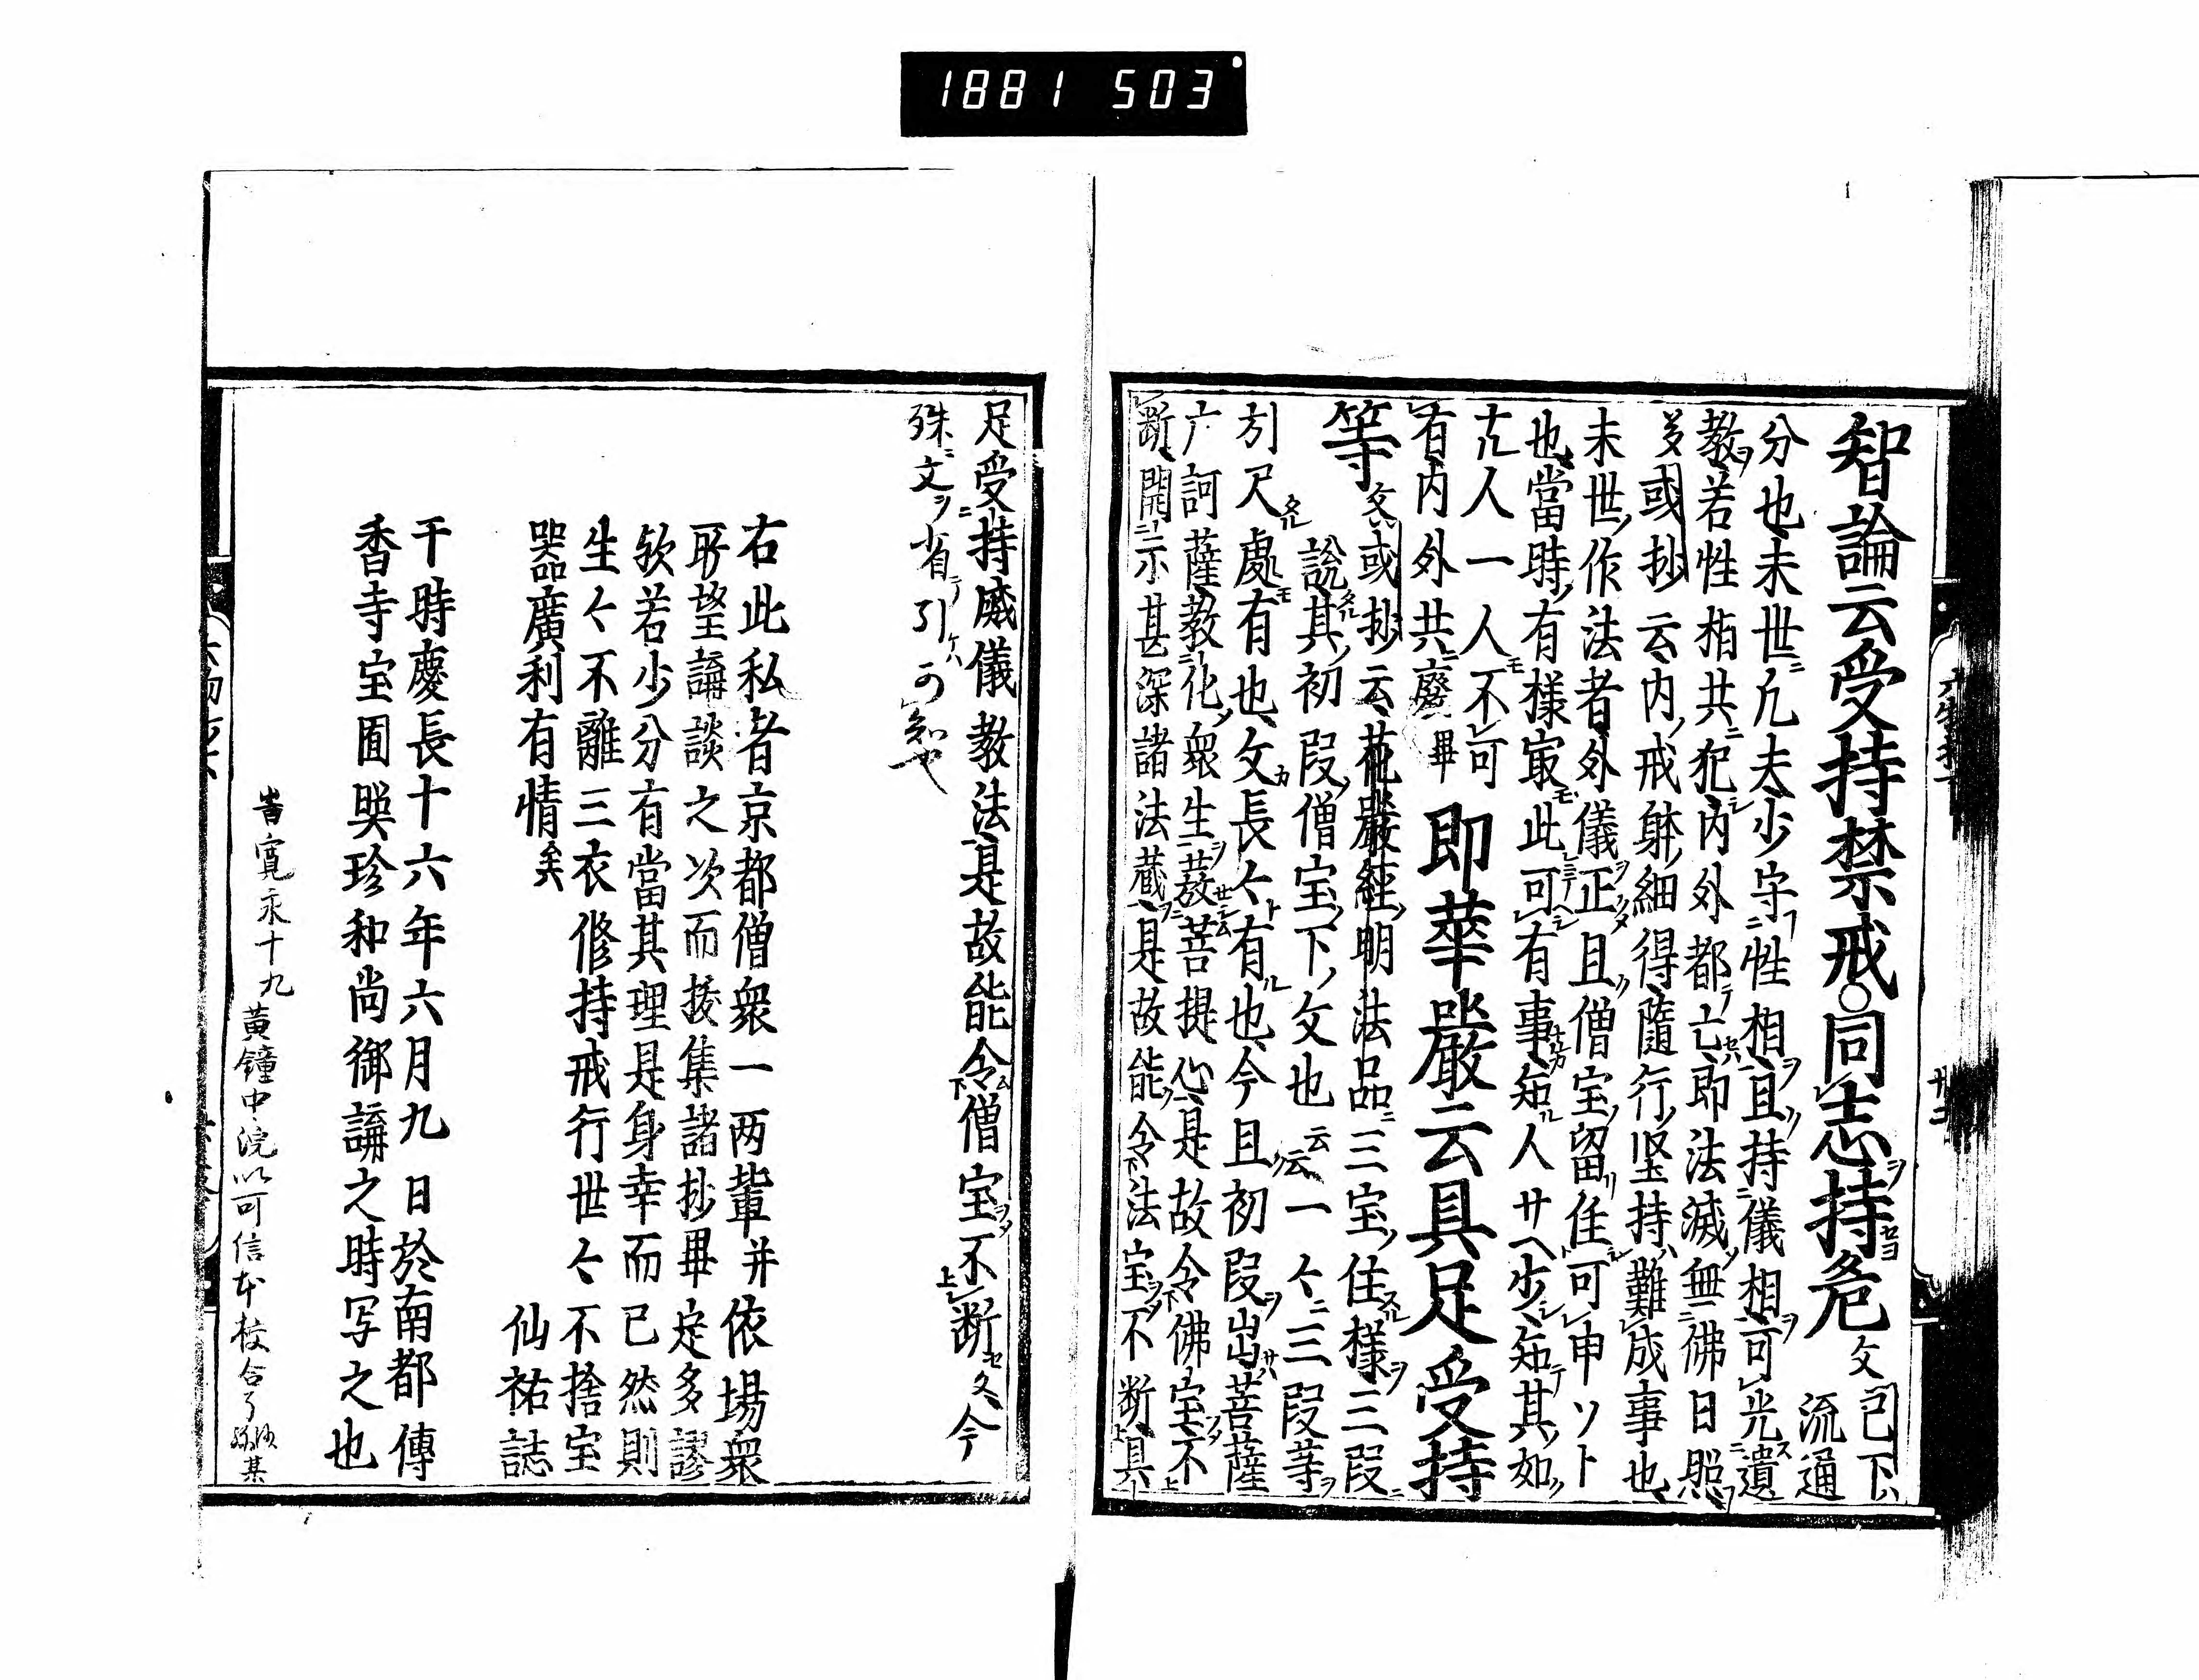 1881 503
智論云受持禁戒○同志持危文已下流通
分也未世ニ凡夫少守性相ヲ且持儀相ヲ可光遺
教ヲ若性相共ニ犯内外都亡即法滅無佛日照
或抄云内戒躰細得隨行堅持難成事也
未世作法者外儀正且僧宝留住可申ソト
也當時有様㝡此可有事知人サヘ少知其如
尢人一人不可
有内外共廢畢即華嚴云具足受持
等文或抄云花嚴經明法品ニ三宝住様ヲ三叚
說其初叚僧宝下文也云云一々ニ三叚等
引尺處有也文長々有也今且初叚出菩薩
广訶薩教化衆生發菩提心是故令佛宝不
断開示甚深諸法蔵是故能令法宝不断具
足受持威儀教法是故能令僧宝不断文今
殊ニ文ヲ省引可知也
右此私者京都僧衆一两輩并依場衆
所望講談之次而挍集諸抄畢定多謬
欤若少分有當其理是身幸而已然則
生々不離三衣修持戒行世々不捨宝
器廣利有情矣　仙祐誌
干時慶長十六年六月九日於南都傳
香寺宝囿㬰珍和尚御講之時写之也
旹寛永十九黄鐘中浣以可信本校合了